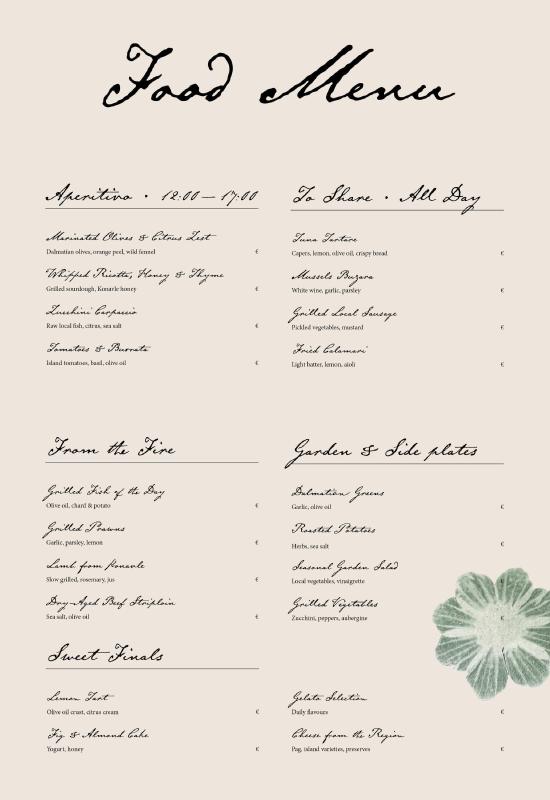 Food Menu
Aperitivo • 12:00 — 17:00
Marinated Olives & Citrus Zest
Dalmatian olives, orange peel, wild fennel €
Whipped Ricotta, Honey & Thyme
Grilled sourdough, Konavle honey €
Zucchini Carpaccio
Raw local fish, citrus, sea salt €
Tomatoes & Burrata
Island tomatoes, basil, olive oil €
To Share • All Day
Tuna Tartare
Capers, lemon, olive oil, crispy bread €
Mussels Buzara
White wine, garlic, parsley €
Grilled Local Sausage
Pickled vegetables, mustard €
Fried Calamari
Light batter, lemon, aioli €
From the Fire
Grilled Fish of the Day
Olive oil, chard & potato €
Grilled Prawns
Garlic, parsley, lemon €
Lamb from Konavle
Slow grilled, rosemary, jus €
Dry-Aged Beef Striploin
Sea salt, olive oil €
Garden & Side plates
Dalmatian Greens
Garlic, olive oil €
Roasted Potatoes
Herbs, sea salt €
Seasonal Garden Salad
Local vegetables, vinaigrette
Grilled Vegetables
Zucchini, peppers, aubergine €
Sweet Finals
Lemon Tart
Olive oil crust, citrus cream €
Fig & Almond Cake
Yogurt, honey €
Gelato Selection
Daily flavours €
Cheese from the Region
Pag, island varieties, preserves €